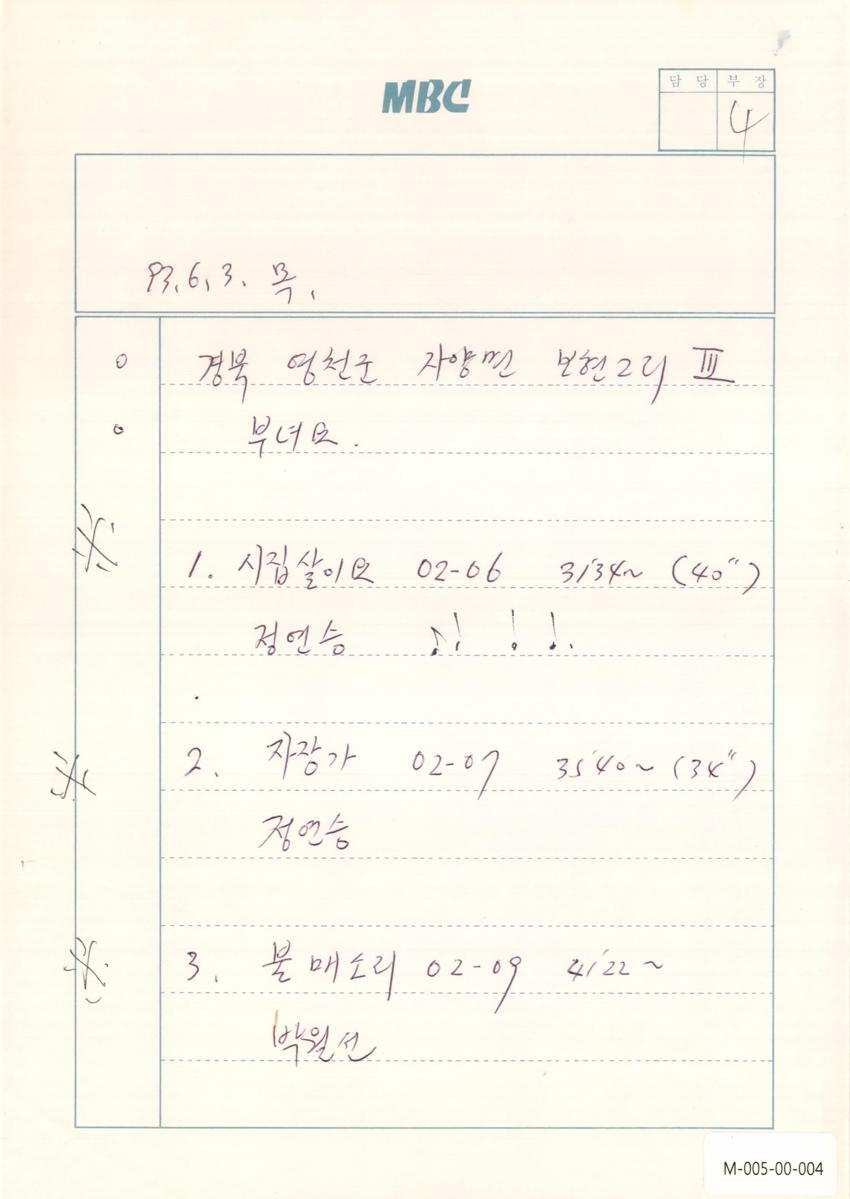 MBC
담당 부장
4
93.6.3. 목.
○ 경북 영천군 자양면 보현2리 Ⅲ
○ 부녀요.
1. 시집살이요 02-06 31'34~ (40")
정연승 ♪! ! !.
2. 자장가 02-07 35'40~ (34")
정연승
3. 불매소리 02-09 41'22~
박월선
M-005-00-004